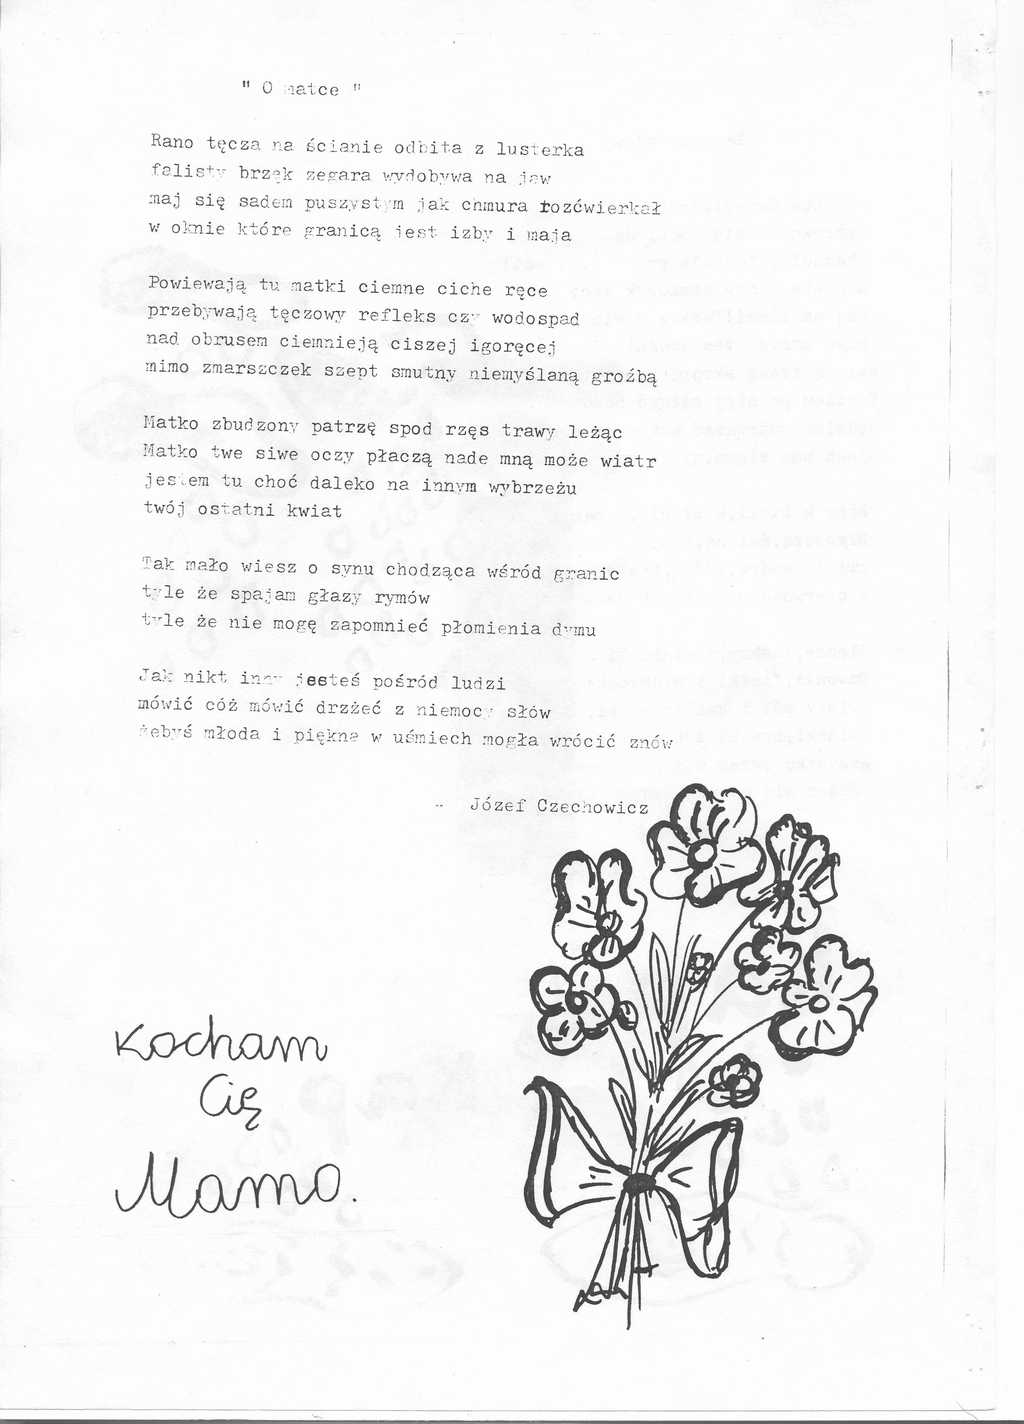 " O matce "
Rano tęcza na ścianie odbita z lusterka
falisty brzęk zegara wydobywa na jaw
maj się sadem puszystym jak chmura rozćwierkał
w oknie które granicą jest izby i maja
Powiewają tu matki ciemne ciche ręce
przebywają tęczowy refleks czy wodospad
nad obrusem ciemnieją ciszej igoręcej
mimo zmarszczek szept smutny niemyślaną groźbą
Matko zbudzony patrzę spod rzęs trawy leżąc
Matko twe siwe oczy płaczą nade mną może wiatr
jestem tu choć daleko na innym wybrzeżu
twój ostatni kwiat
Tak mało wiesz o synu chodząca wśród granic
tyle że spajam głazy rymów
tyle że nie mogę zapomnieć płomienia dymu
Jak nikt inny jesteś pośród ludzi
mówić cóż mówić drżżeć z niemocy słów
żebyś młoda i piękna w uśmiech mogła wrócić znów
- Józef Czechowicz
Kocham
Cię
Mamo.